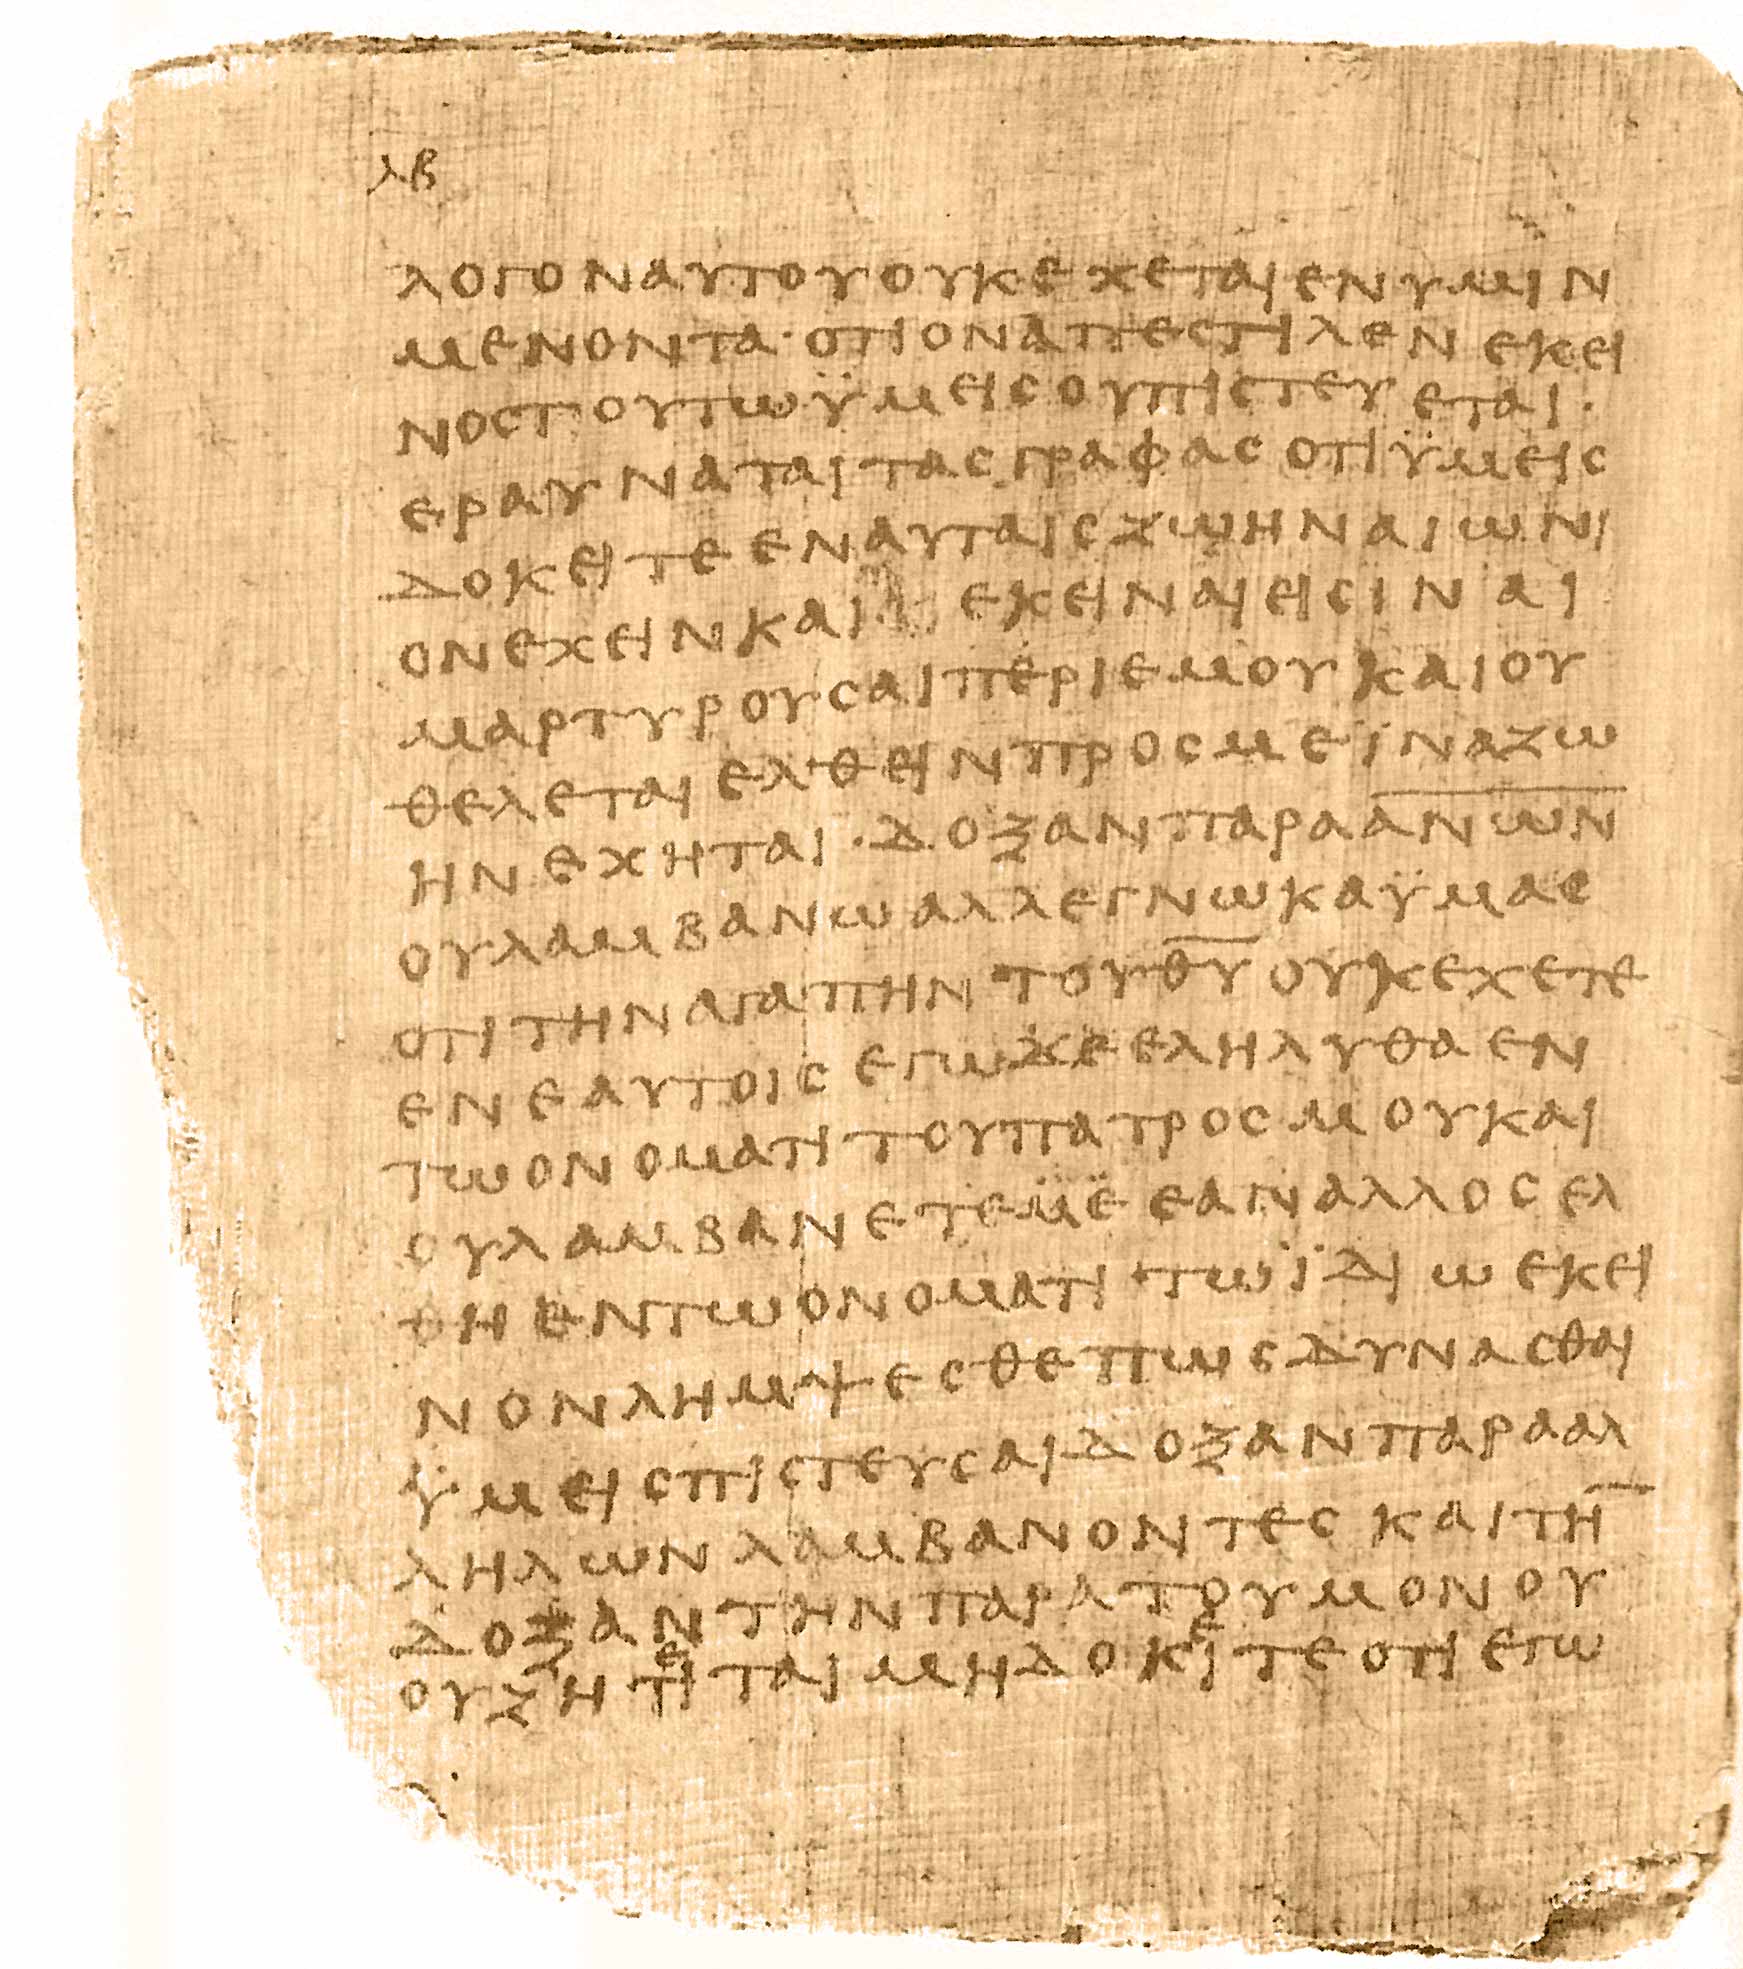 λβ
λογοναυτουουκεχεταιενυμιν
μενοντα·οτιοναπεστιλενεκει
νοστουτωϋμεισουπιστευεται·
εραυναταιτασγραφασοτιϋμεισ
δοκειτεεναυταισζωηναιωνι
ονεχεινκαι εκειναιεισιναι
μαρτυρουσαιπεριεμουκαιου
θελεταιελθεινπροσμεϊναζω
ηνεχηται·δοξανπαρααν̅ω̅ν̅
ουλαμβανωαλλεγνωκαϋμασ
οτιτηναγαπηντουθ̅υ̅ουκεχετε
ενεαυτοισεγωδεεληλυθαεν
τωονοματιτουπατροσμουκαι
ουλαμβανετεμ̈ε̈εαναλλοσελ
θηεντωονοματιτωϊδιωεκει
νονλημψεσθεπωσδυνασθαι
ϋμεισπιστευσαιδοξανπαρααλ
ληλωνλαμβανοντεσκαιτη̅
δοξαντηνπαρατουμονου
ουζητειταιμηδοκειτεοτιεγω